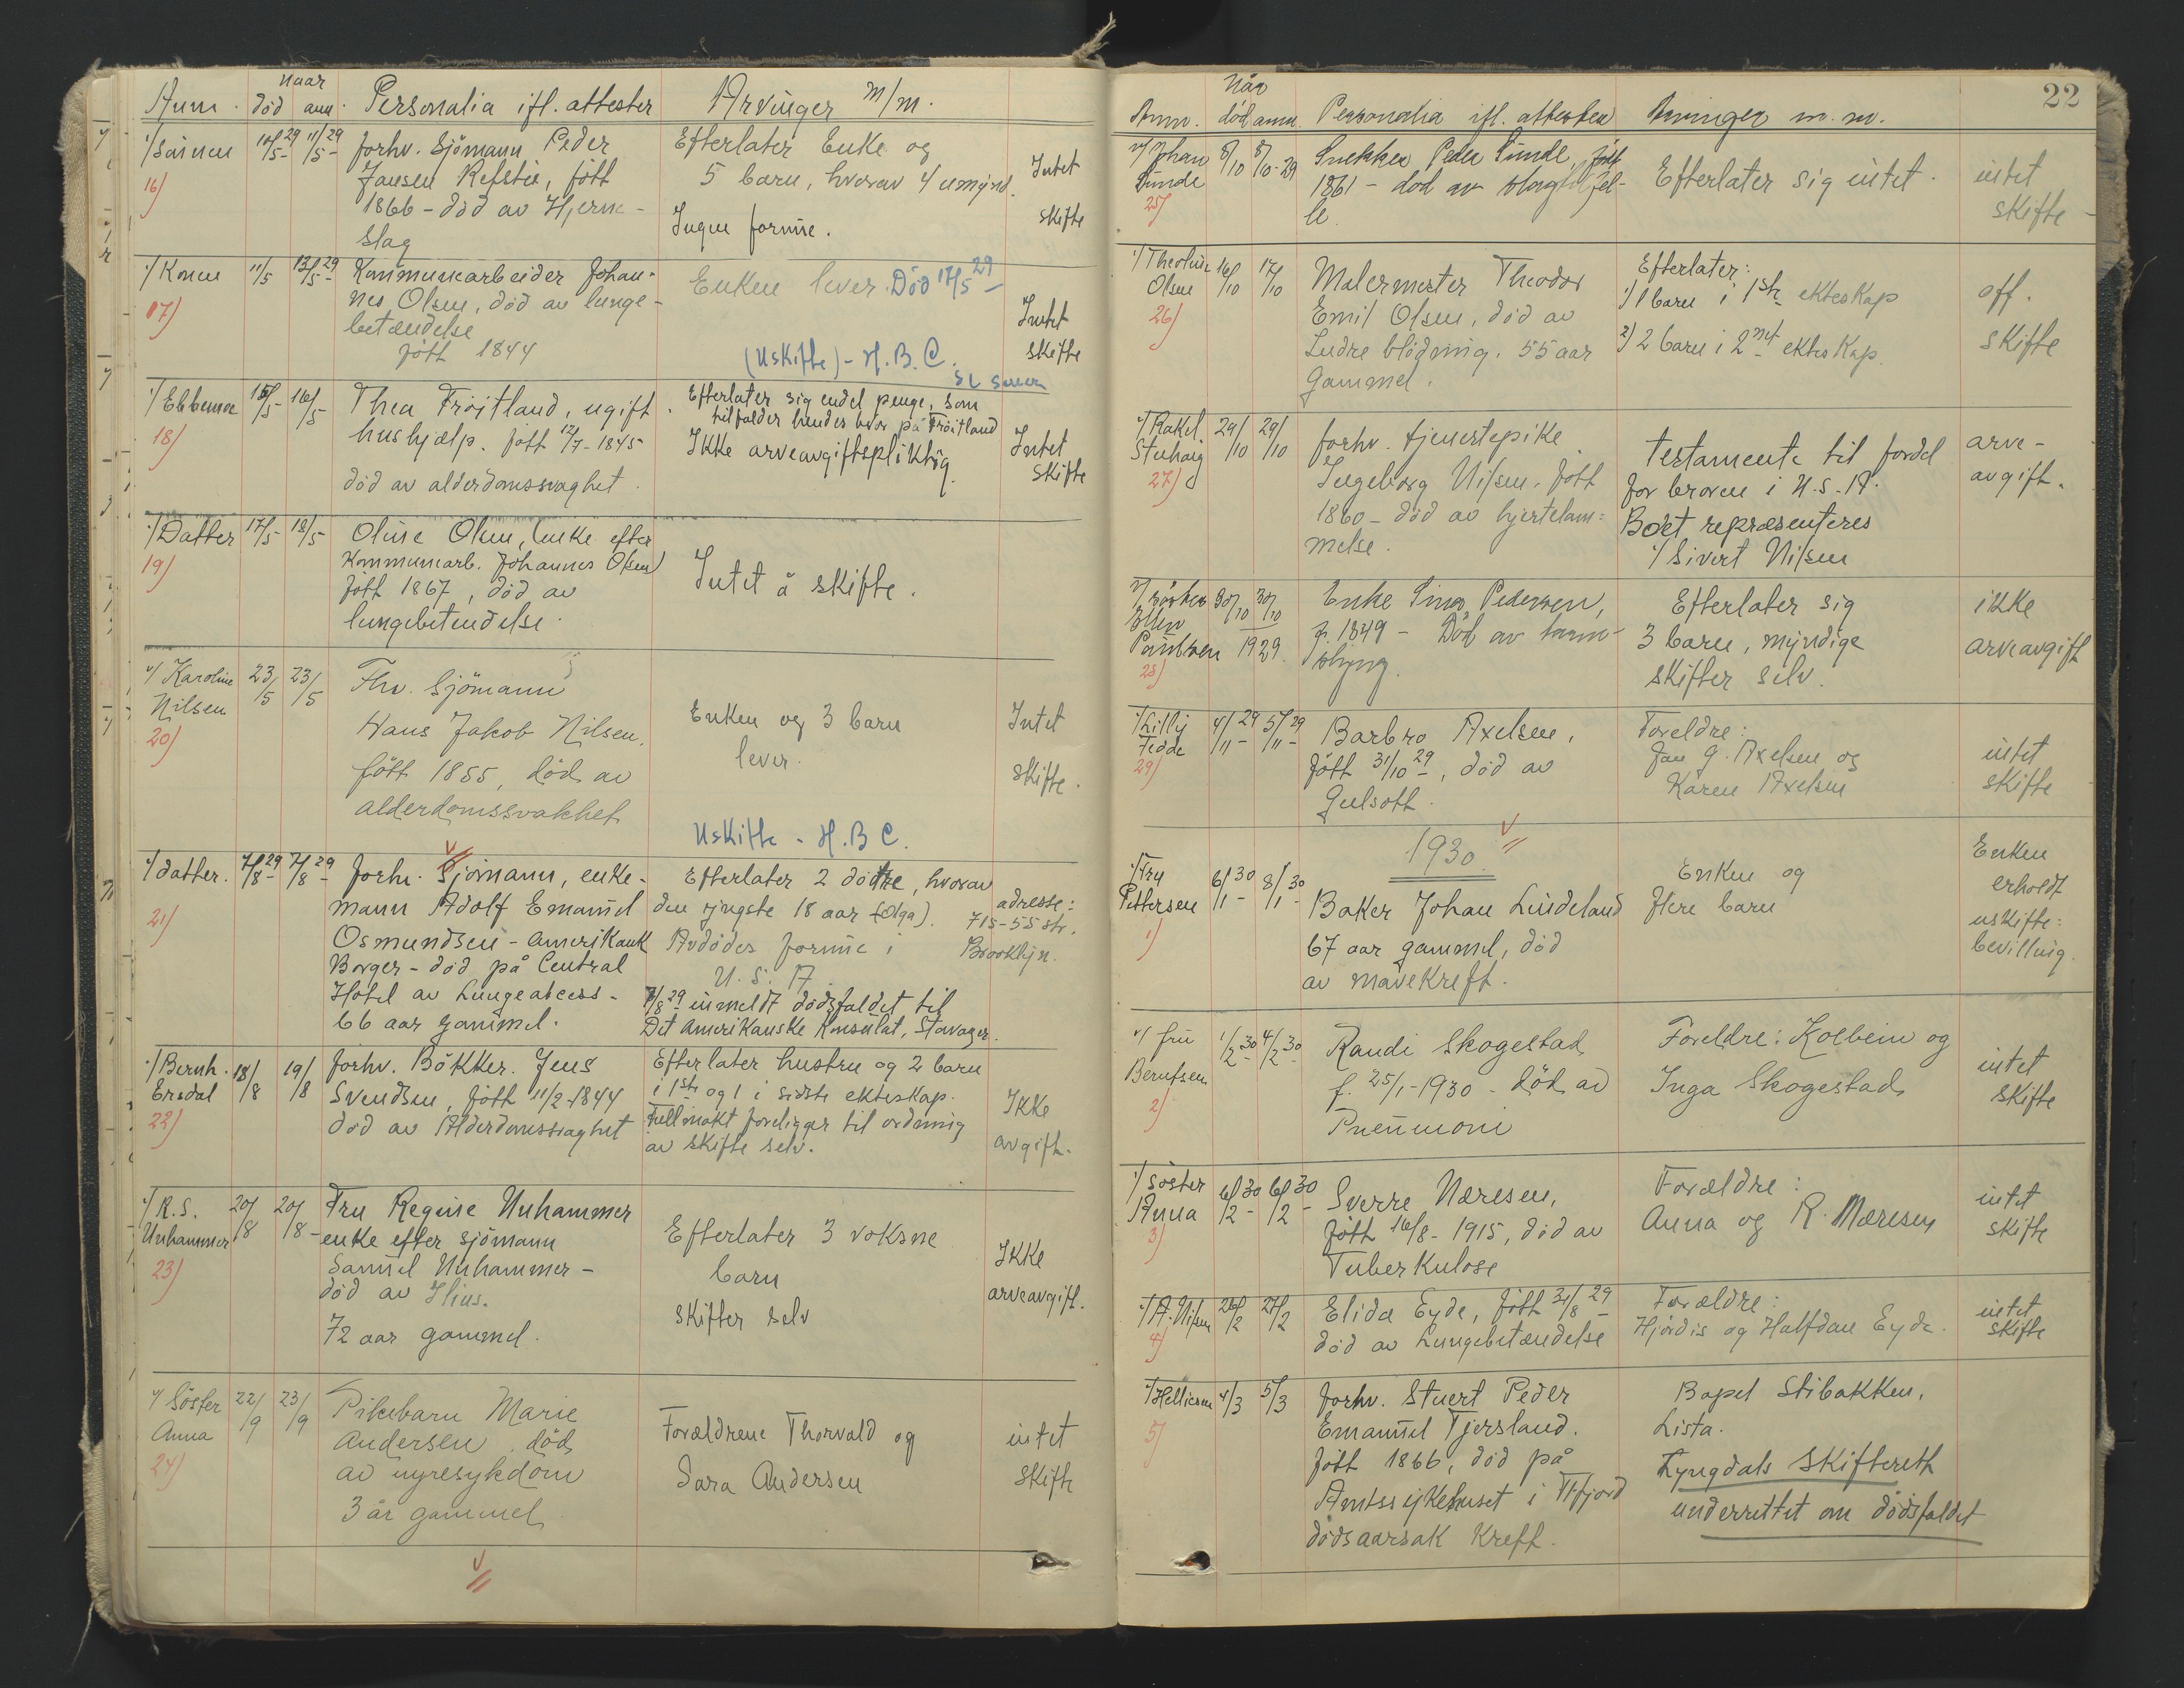 Naar
Anm. död anm. Personalia ifl. attester Arvinger m/m.
v/ sönnen 10/5-29 11/5-29 forhv. Sjömann Peder Efterlater Enke og Intet
16) Jansen Refstie, fött 5 barn, hvorav 4 umynd. skifte
1866 - död av Hjerne- Ingen formue.
slag
v/ Konen 11/5 13/5-29 Kommunearbeider Johan- Enken lever. Död 17/5-29
17) nes Olsen, död av lunge- Intet
betændelse skifte
fött 1844 (Uskifte) - H.B.C.
v/ Ebbemor 15/5- 16/5- Thea Fröitland, ugift Efterlater sig endel penge, som
18) hushjælp. fött 12/7-1845 tilfalder hendes bror på Fröitland Intet
död av alderdomssvaghet. Ikke arveavgiftspliktig. skifte
v/ Datter 17/5- 18/5- Oline Olsen, (enke efter
19) Kommunearb. Johannes Olsen)
fött 1867, död av Intet å skifte.
lungebetendelse.
v/ Karoline 23/5 23/5 Fhv. Sjömann
Nilsen Hans Jakob Nilsen, Enken og 3 barn Intet
20) fött 1855, död av lever. skifte.
alderdomssvakhet
Uskifte - H.B.C.
v/ datter. 7/8-29 7/8-29 forhv. Sjömann, enke- Efterlater 2 dötre, hvorav
21) mann Adolf Emanuel den yngste 18 aar (Olga). adresse:
Osmundsen - amerikansk Avdödes formue i 715-55 str.
Borger - död på Central U.S.A. Brooklyn.
Hotel av Lungeabcess - 7/8-29 inmeldt dödsfaldet til
66 aar gammel. Det Amerikanske Konsulat, Stavager.
v/ Bernh. 18/8 19/8 forhv. Bökker. Jens Efterlater hustru og 2 barn
Ersdal Svendsen, fött 11/2-1844 i 1ste og 1 i sidste ekteskap. Ikke
22) död av Alderdomssvaghet Fullmakt foreligger til ordning avgift.
av skifte selv.
v/ R.S. 20/8 20/8- Fru Regine Unhammer
Unhammer enke efter sjömann Efterlater 3 voksne Ikke
23) Samuel Unhammer - barn arveavgift.
död av Ilius. skifter selv
72 aar gammel.
v/ Söster 22/9 23/9 Pikebarn Marie
Anna Andersen, död Forældrene Thorvald og intet
24) av nyresykdom Sara Andersen skifte
3 år gammel
22
Når
Anm. död anm. Personalia ifl. attester Arvinger m.m.
v/ Johan 8/10 8/10-29 Snekker Peder Sunde, fött Efterlater sig intet. intet
Sunde 1861 - död av slagtilfel- skifte -
25) le
v/ Theoline 16/10 17/10 Malermester Theodor Efterlater:
Olsen Emil Olsen, död av 1) 1 barn i 1ste ekteskap off.
26) Indre blödning. 55 aar 2) 2 barn i 2net ekteskap. skifte
gammel.
v/ Rakel 29/10 29/10 forhv. tjenestepike Testamente til fordel arve-
Stuhaug Ingeborg Nilsen. fött for broren i U.S.A. avgift.
27) 1860 - död av hjertelam- Boet repræsenteres
melse. v/ Sivert Nilsen
v/ söster 30/10 30/10 Enke Sina Pedersen, Efterlater sig ikke
Ellen f. 1849 - Död av tarm- 3 barn, myndige arveavgift
Paulsen 1929. slyng. skifter selv.
28)
v/ Lilly 4/11-29 5/11-29 Barbro Axelsen, Foreldre:
Fedde fött 31/10-29, död av Jan G. Axelsen og intet
29) Gulsott. Karen Axelsen skifte
1930
v/ Fru 6/1-30 8/1-30 Enken og Enken
Pettersen Baker Johan Lindeland flere barn erholdt
1) 67 aar gammel, död uskifte:
av mavekreft. bevilling.
v/ fru 1/2-30 4/2-30 Randi Skogestad Foreldre: Kolbein og intet
Berntsen f. 25/1-1930 - död av Inga Skogestad skifte
2) Pneumoni
v/ söster 6/2-30 6/2-30 Sverre Næresen, Forældre: intet
Anna fött 16/8-1915, död av Anna og R. Næresen skifte
3) Tuberkulose
v/ A. Nilsen 26/2 27/2 Elida Eyde, fött 31/8-29 Forældre: intet
4) död av Lungebetændelse Hjördis og Halfdan Eyde. skifte
v/ Hellesen 4/3 5/3 forhv. Stuert Peder Bopel Stibakken,
5) Emanuel Tjersland. Lista.
fött 1866, död på Lyngdals Skifterett
Amtssykehuset i Ffjord underrettet om dödsfaldet
dödsaarsak Kreft.